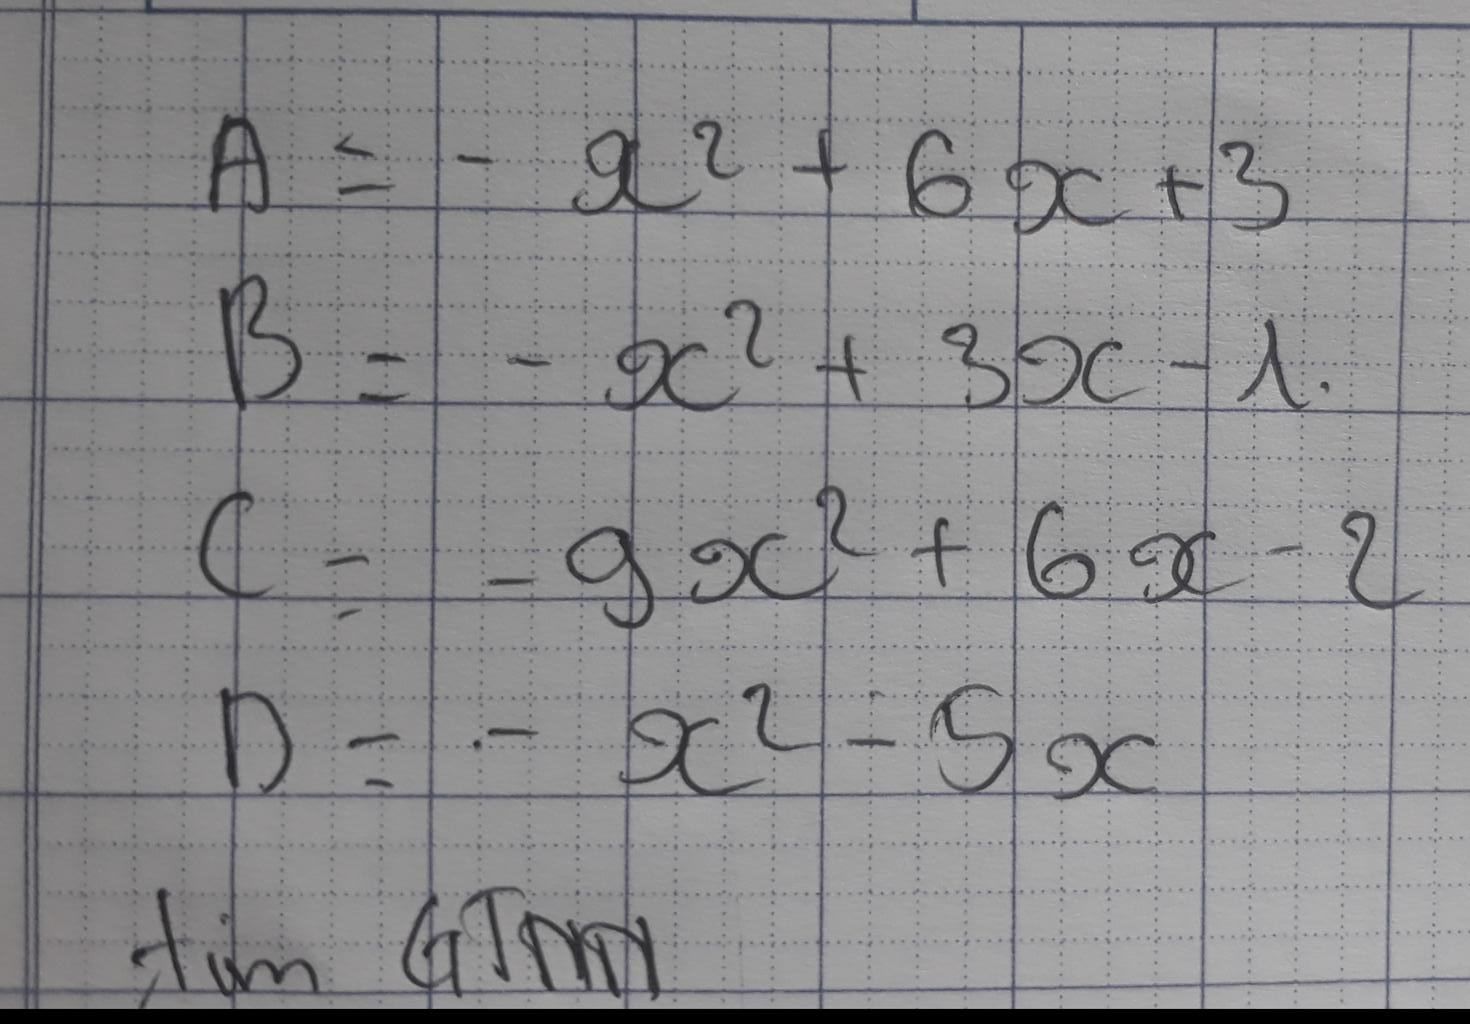 A = - x² + 6x + 3
B = - x² + 3x - 1.
C = - 9x² + 6x - 2
D = - x² - 5x
tìm GTNN